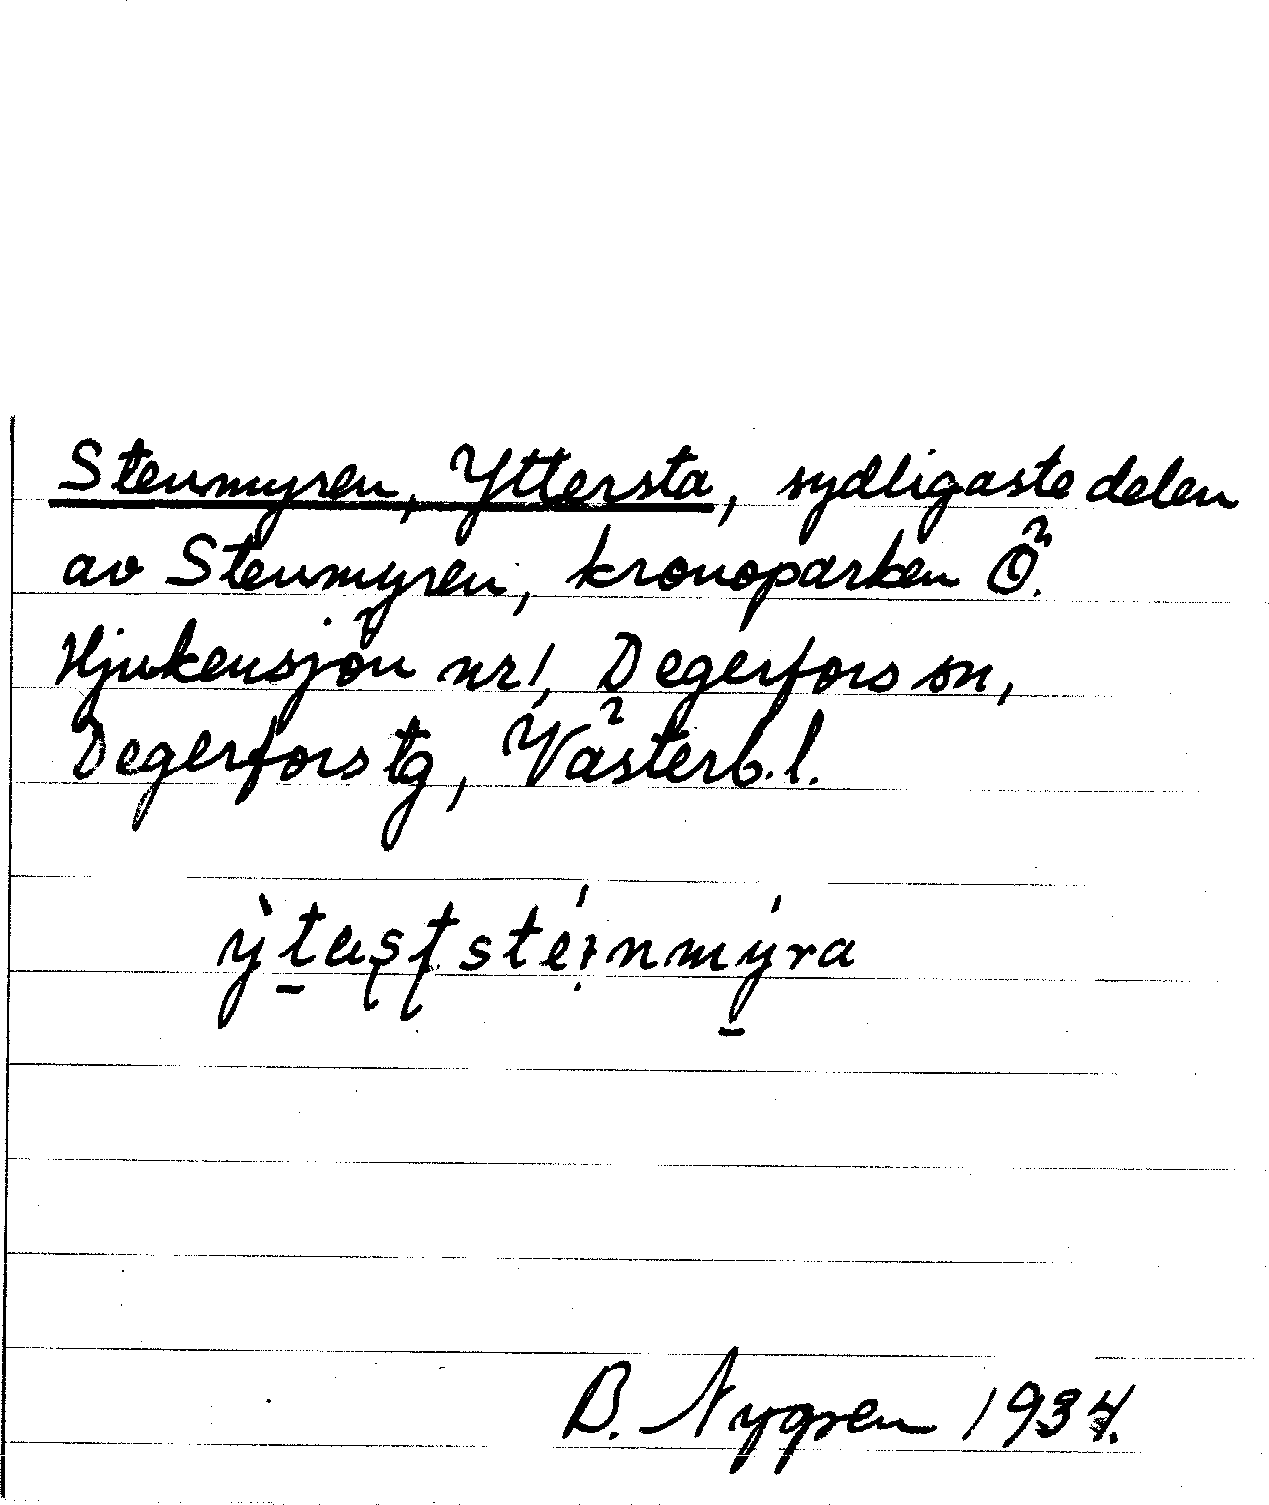 Stenmyren, Yttersta, sydligaste delen
av Stenmyren, kronoparken Ö.
Hjukensjön nr 1, Degerfors sn,
Degerfors tg, Västerb. l.
B. Nygren 1934.